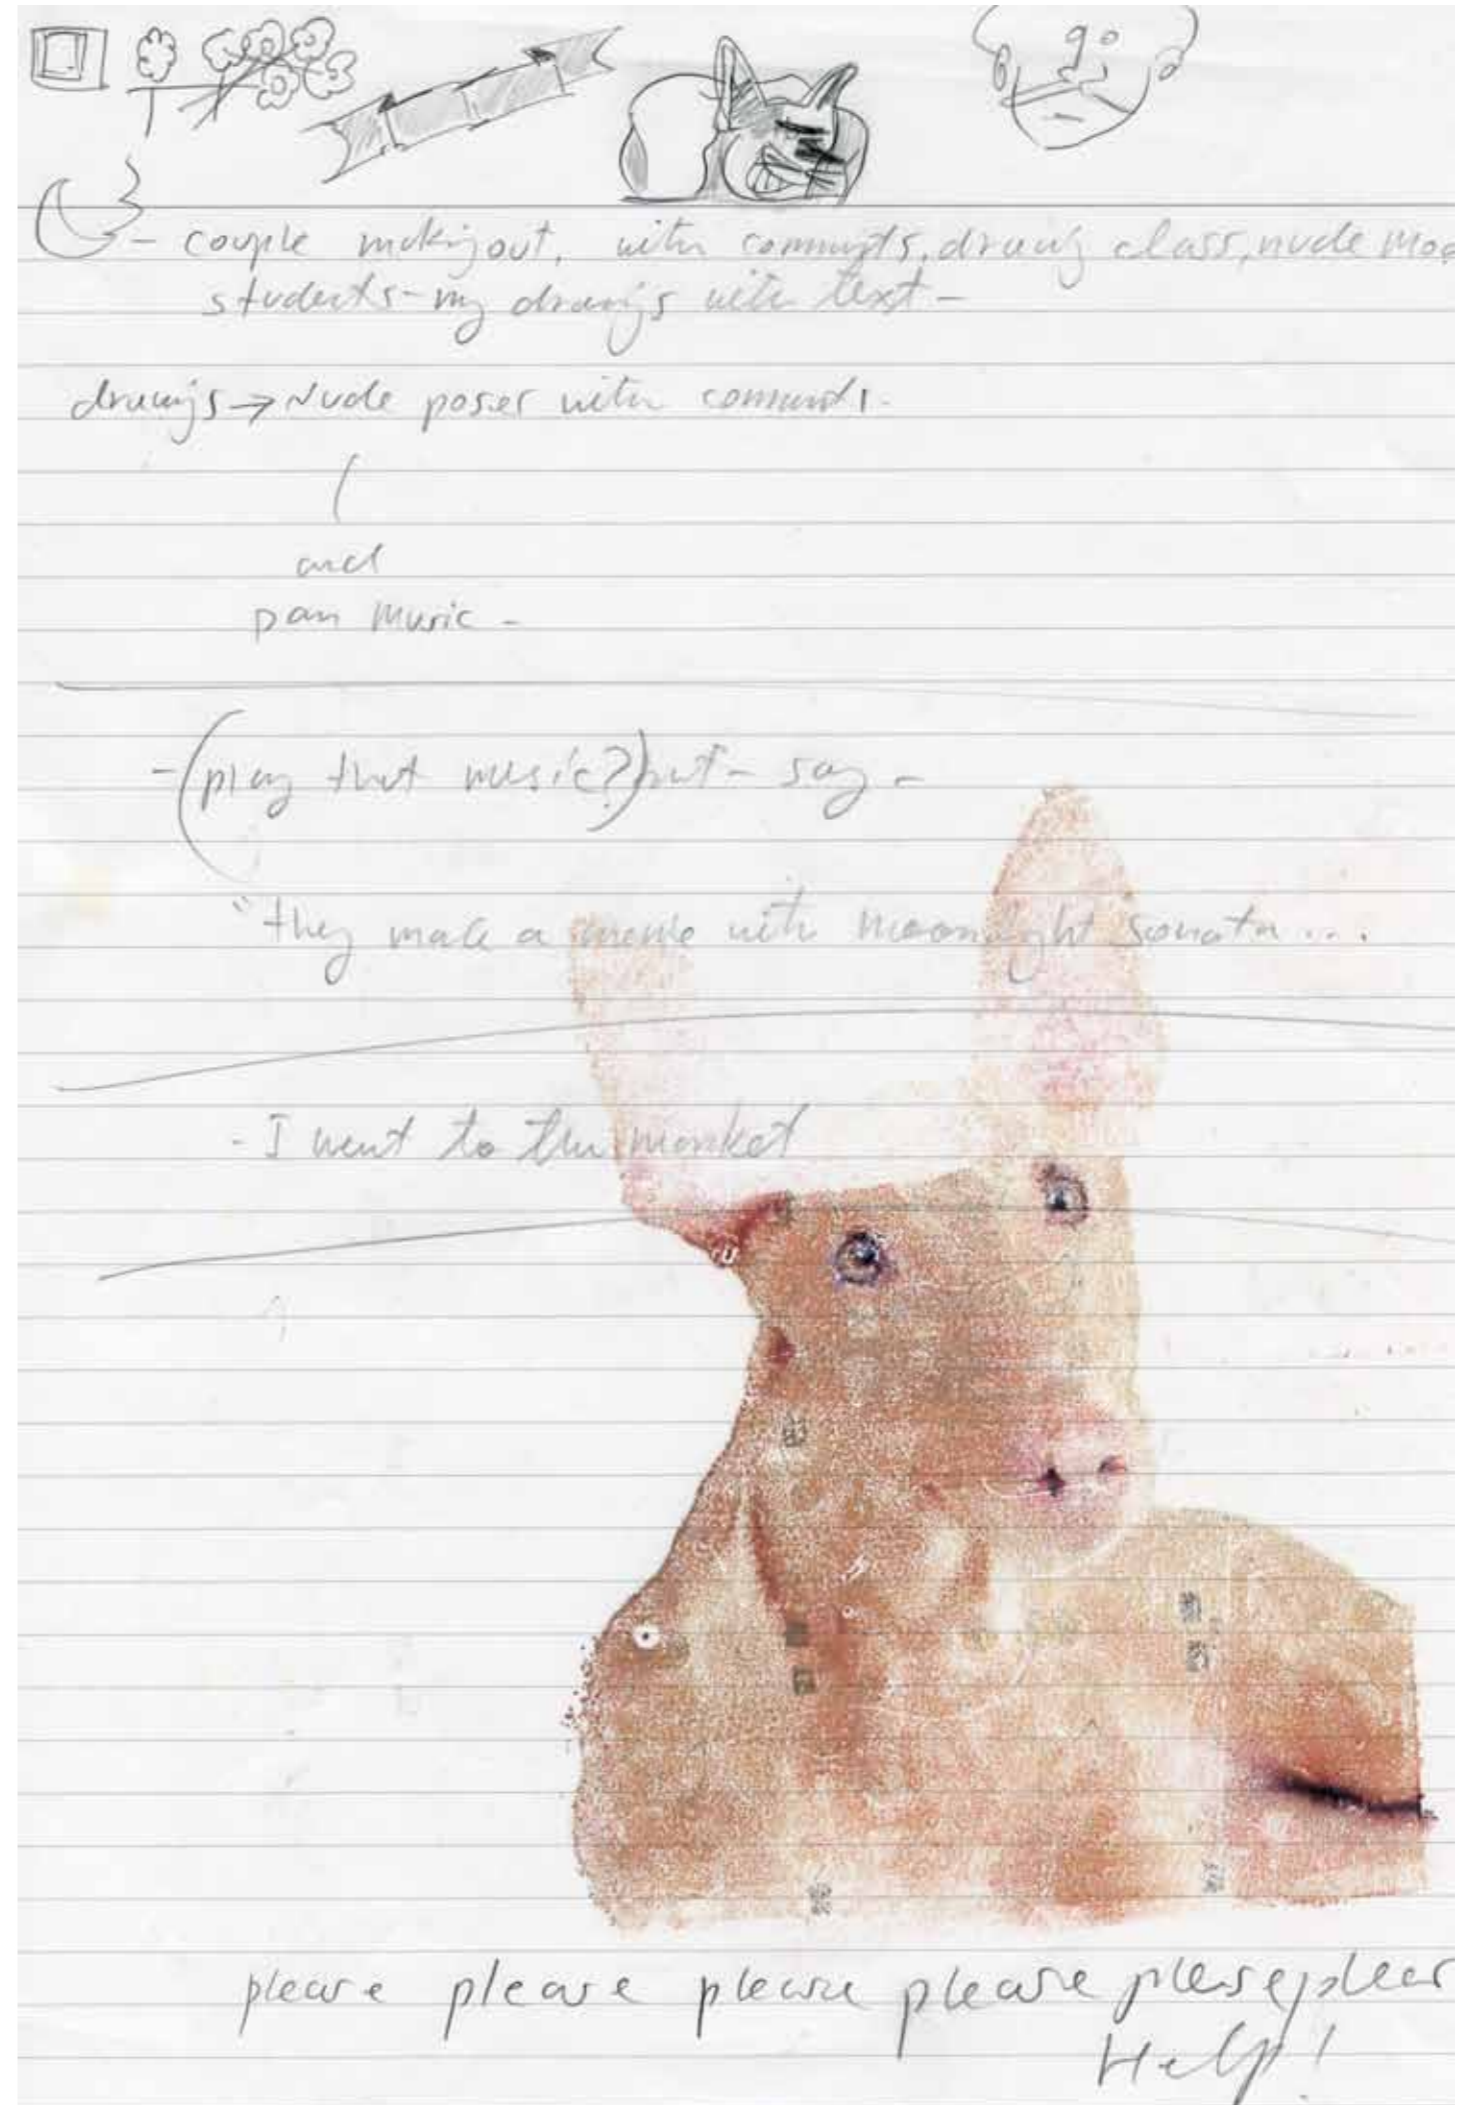 - couple making out, with comments, drawing class, nude mod
students - my drawings with text -
drawings → Nude poses with comments.
and
pan Music -
- (play that music?) but - say -
"they make a movie with moonlight sonata...
- I went to the market
please please please please please pleas
Help!